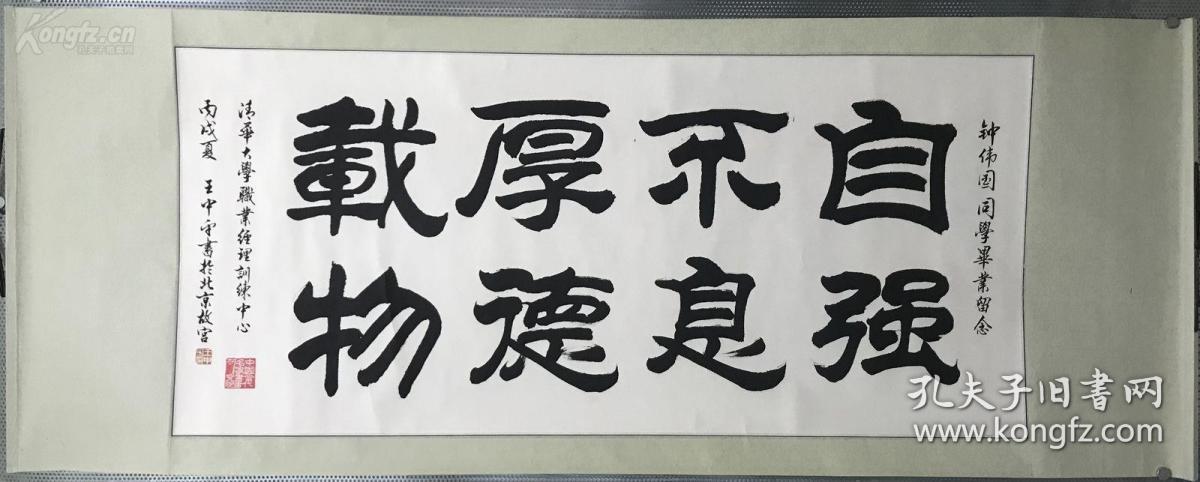 钟伟国同學畢業留念
自强
不息
厚德
載物
清華大學職業經理訓練中心
丙戌夏 王中宇書於北京故宮
Kongfz.cn
孔夫子拍卖网
孔夫子旧书网
www.kongfz.com